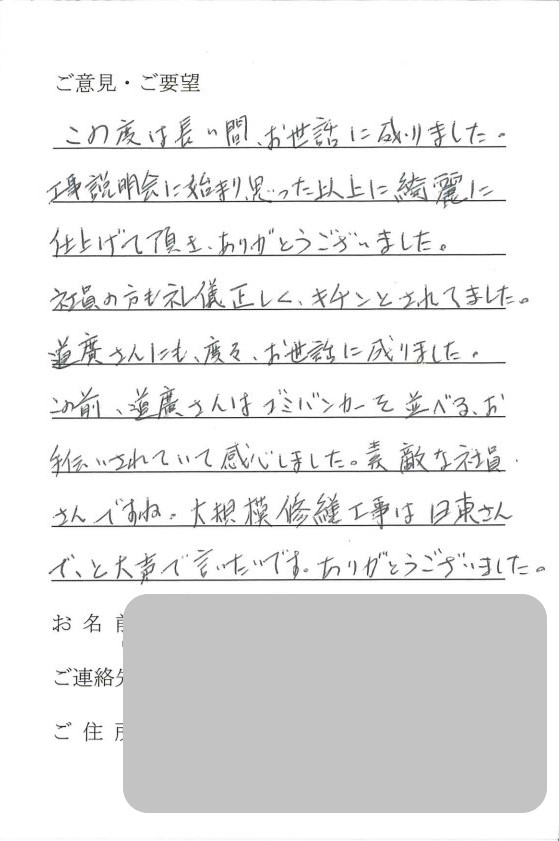 ご意見・ご要望
この度は長い間、お世話に成りました。
工事説明会に始まり、思った以上に綺麗に
仕上げて頂き、ありがとうございました。
社員の方も礼儀正しく、キチンとされてました。
道廣さんにも、度々、お世話に成りました。
この前、道廣さんはゴミバンカーを並べる、お
手伝いされていて感心しました。素敵な社員
さんですね。大規模修繕工事は日東さん
で、と大声で言いたいです。ありがとうございました。
お名前
ご連絡先
ご住所